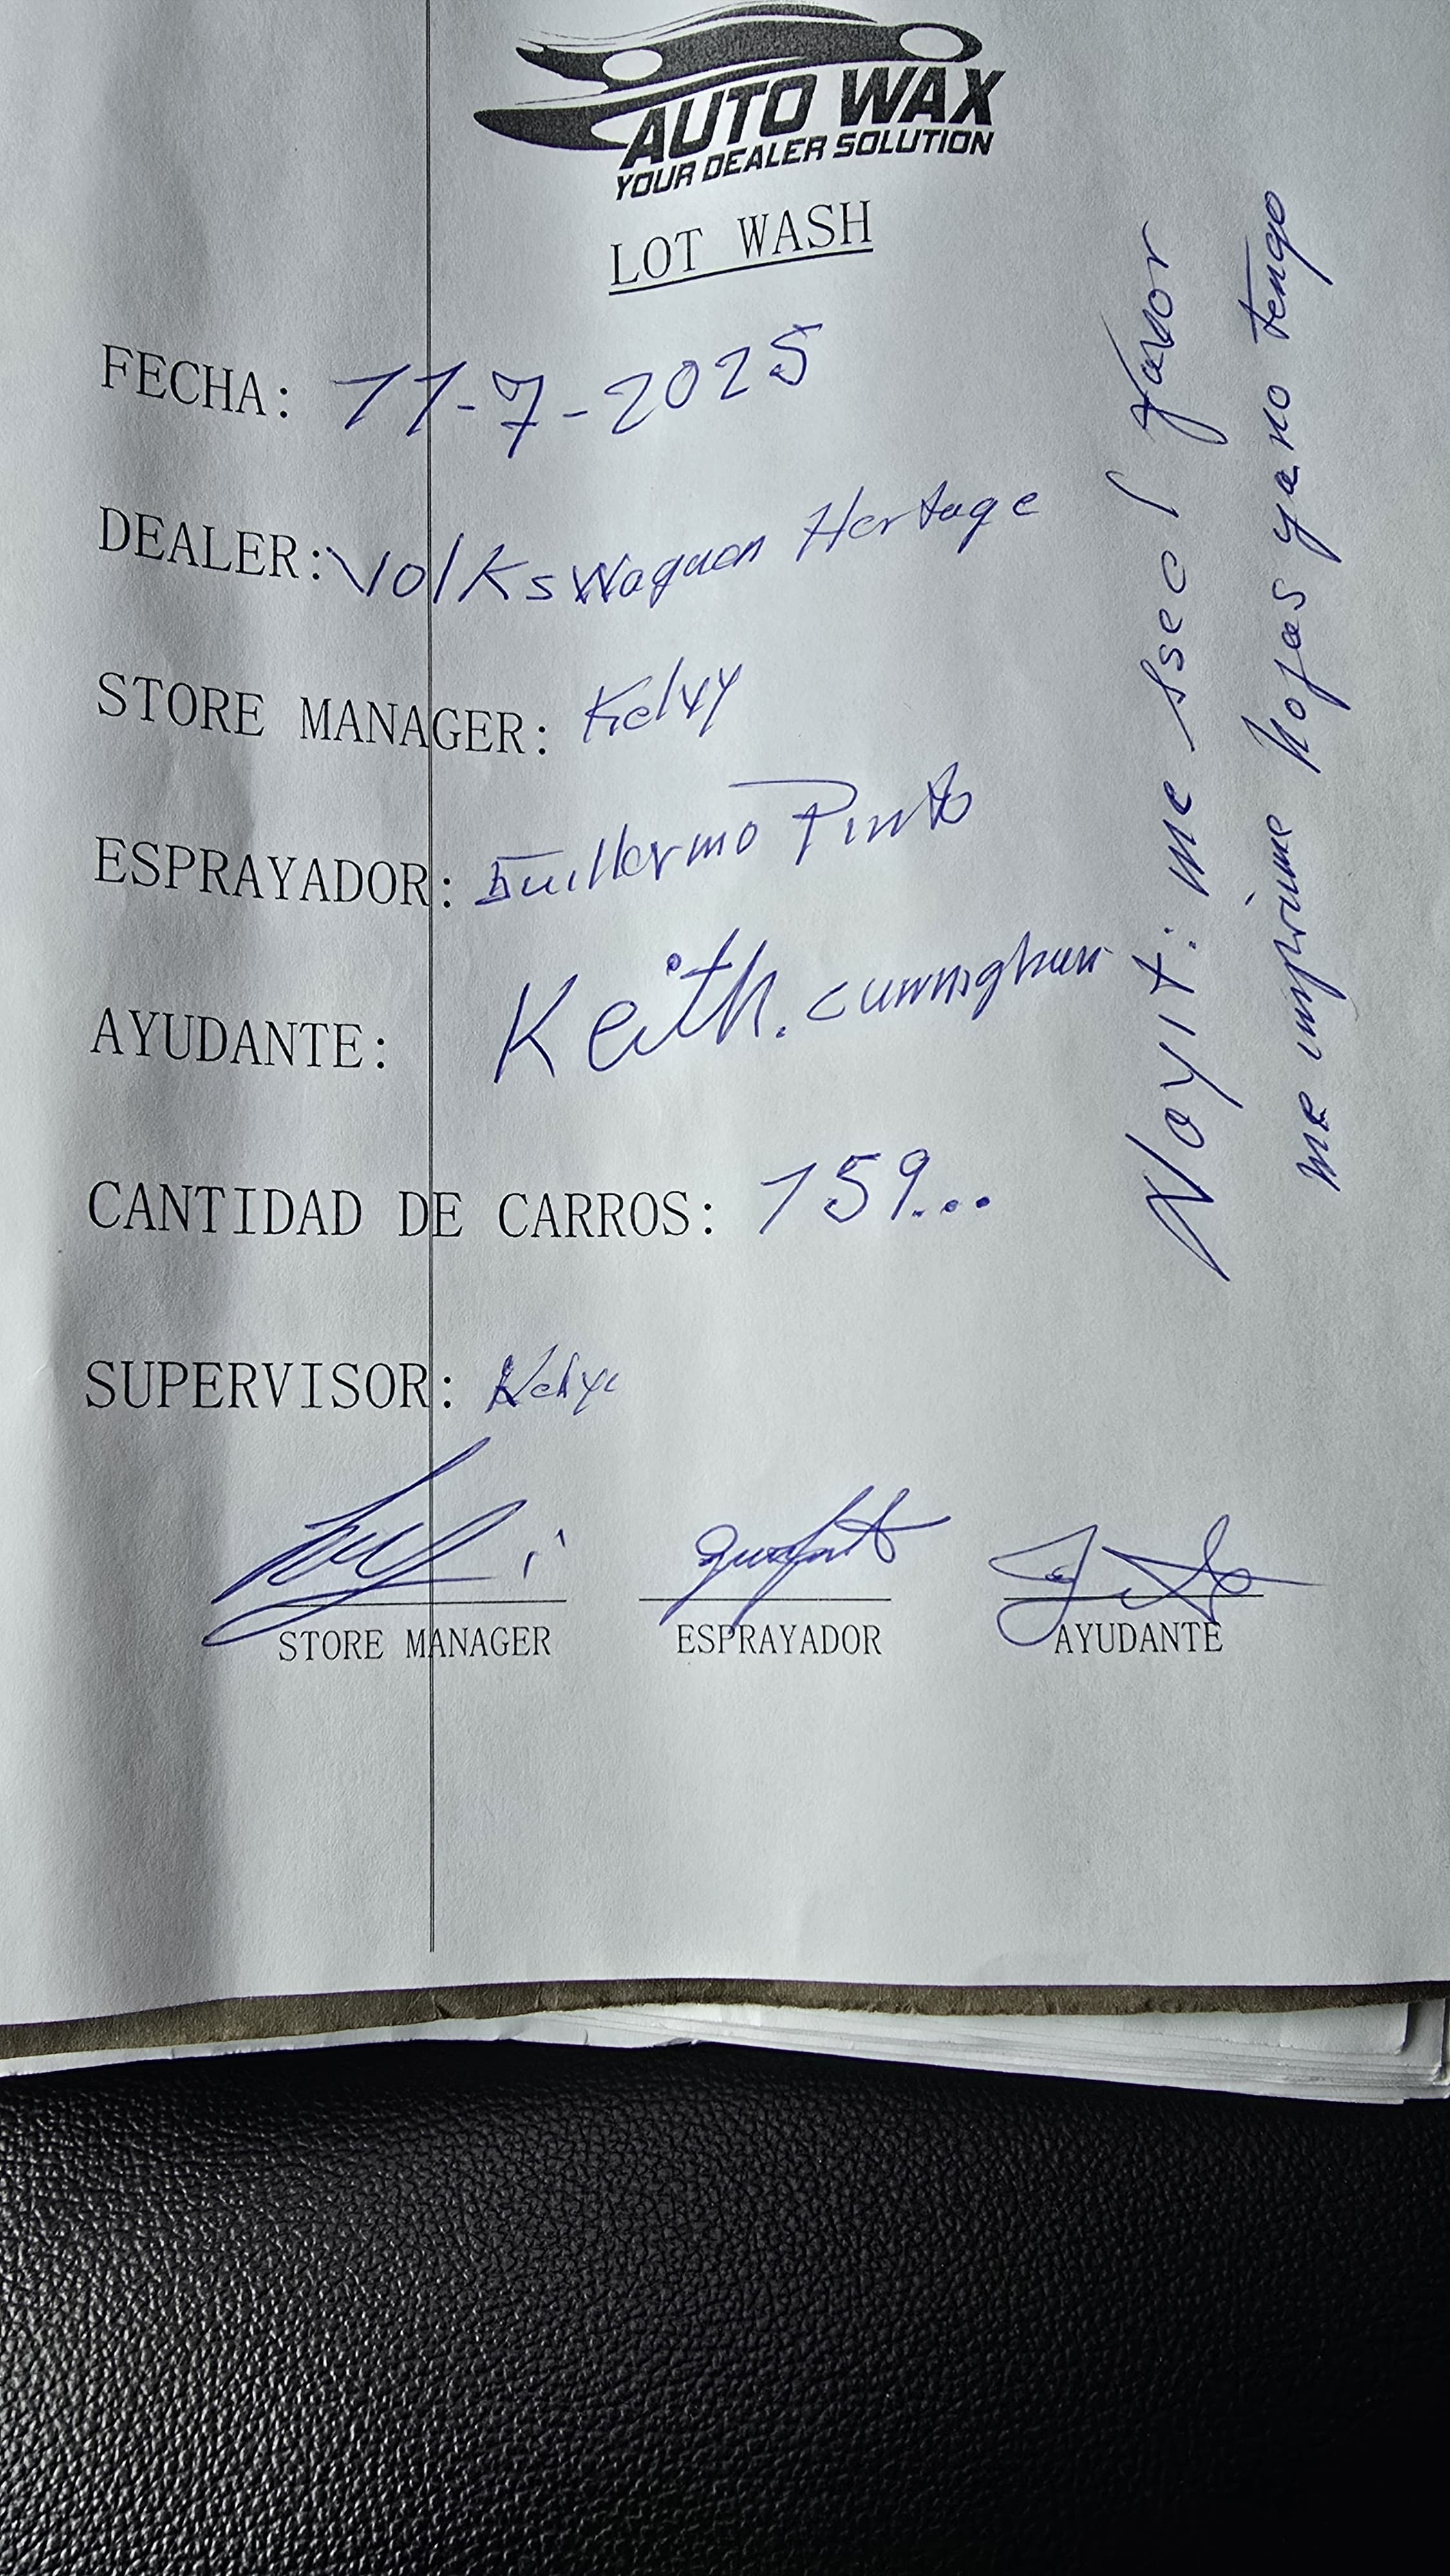 AUTO WAX
YOUR DEALER SOLUTION
LOT WASH
FECHA: 11-7-2025
DEALER: VolKsWaguen Hertage
STORE MANAGER: Kelvy
ESPRAYADOR: Guillermo Pinto
AYUDANTE: Keith. cunningham
CANTIDAD DE CARROS: 159...
SUPERVISOR:
STORE MANAGER ESPRAYADOR AYUDANTE
Noyit: me sse l favor
me imprime hojas ya no tengo